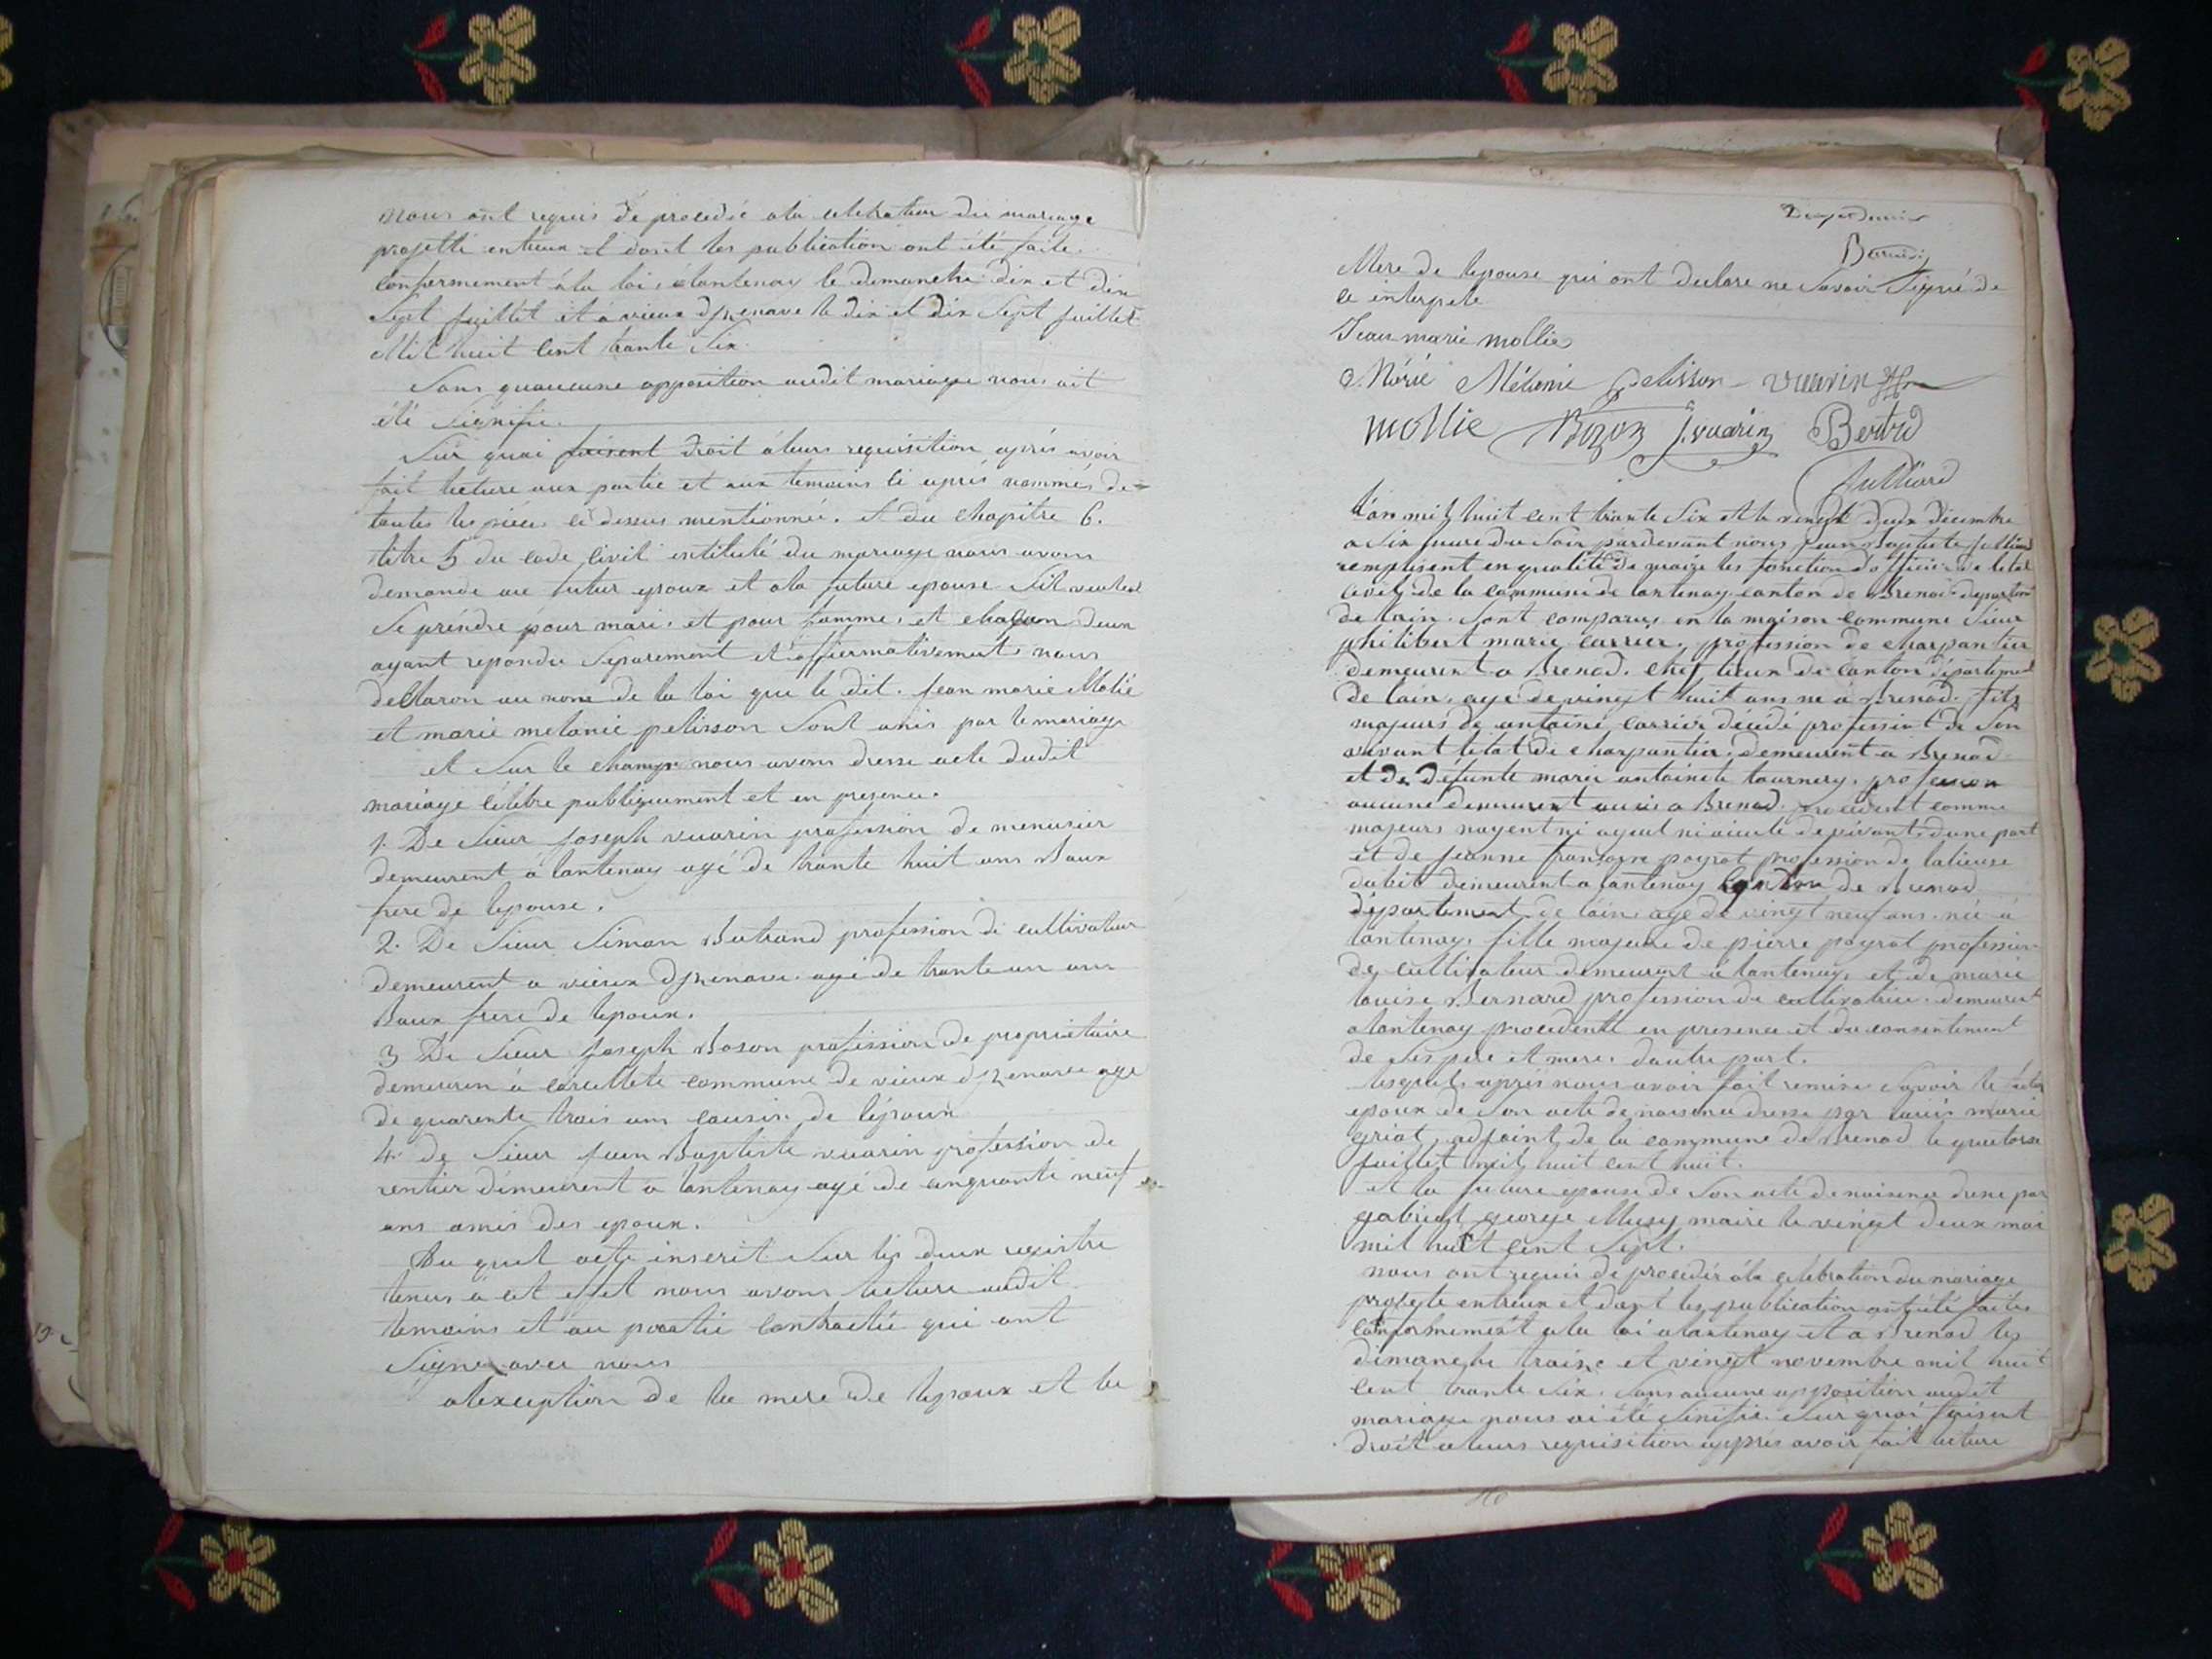 nous ont requis de procedée ala celebration du mariage
projetté entreux et dont les publication ont été faite
conformement à la loi, a lantenay le dimanche dix et dix
Sept juillet et à vieux d'yzenave le dix et dix Sept juillet
Mil huit Cent trante Six.
Sans quaucune opposition audit mariage nous ait
été Signifie.
Sur quoi faisent droit à leurs requisition après avoir
fait lecture aux partie et aux temoins ci après nommés de
toutes les pieces ci dessus mentionnée. et du Chapitre 6.
titre 5 du code Civil intitulé du mariage nous avons
demande au futur epoux et ala future epouse Sil veulent
Se prendre pour mari, et pour famme, et chacun deux
ayant repondu Separement et affirmativement, nous
declaron au nom de la loi que le dit. jean marie Molié
et marie melanie pelisson Sont unis par le mariage
et Sur le champs nous avons dresse acte dudit
mariage célébre publiquement et en presence.
1. De Sieur joseph vuarin profession de menuisier
demeurent à lantenay agé de trante huit ans Baux
frere de lepouse.
2. De Sieur Simon Bertrand profession de cultivateur
demeurent a vieux dyzenave agé de trante un ans
Baux frere de lepoux.
3 De Sieur joseph Boson profession de propriétaire
demeuren à corcellete commune de vieux dyzenave agé
de quarente trois ans cousin de lépoux
4. de Sieur jean Baptiste vuarin profession de
rentier démeurent a lantenay agé de cinquante neuf
ans amis des epoux.
Du quel acte inscrit Sur les deux registre
tenus à cet effet nous avons lecture audit
temoins et au partie contractée qui ont
Signé avec nous
alexception de la mere de lepoux et la
Mere de lepouse qui ont declare ne Savoir Signé de
ce interpele
Jean marie mollie
Mérié Mélanie pelisson vuarin
mollie Bozon J. vuarin Bertrd
Julliard
L'an mil huit cent trante Six et le vingt deux décembre
a Six heure du Soir pardevant nous jean Baptiste julliard
remplisent en qualité de maire les fonction d'officier de letat
civil de la commune de lantenay canton de Brenod departement
de lain. Sont comparus en la maison commune Sieur
philibert marie carrier, profession de charpantier
demeurent a Brenod. chef lieux de canton département
de lain, agé de vingt huit ans ne a Brenod. fils
majeurs de antoine carrier décédé professiont de Son
vivant letat de charpantier, demeurent a Brenod
et de defunte marie antoinete tournery, profession
aucune demeurent aussi a Brenod. procedent comme
majeurs nayent ni ayeul ni aieule de vivants dune part
et de jeanne françoise poyrot profession de
demeurent a lantenay canton de Brenod
département de lain, agé de vingt neuf ans. née à
lantenay, fille majeure de pierre poyrot profession
de cultivateur demeurent à lantenay, et de marie
louise Bernard profession de cultivatrice. demeurent
a lantenay procedente en presence et du consentement
de Ses pere et mere. dautre part.
lesquels après nous avoir fait remise Savoir le futur
epoux de Son acte de naisence dresse par louis marie
griot, adjoint de la commune de Brenod le quatorse
juillet mil huit cent huit.
et la future epouse de Son acte de naisence drese par
gabriel george Musy maire le vingt deux mai
mil huit cent Sept.
nous ont requis de procedér à la célébration du mariage
projeté entreux et dont les publication ont été faites
conformement a la loi a lantenay et à Brenod les
dimanche traise et vingt novembre mil huit
cent trante Six. Sans aucune opposition audit
mariage nous ai été Sinifie. Sur quoi faisent
droit aleurs requisition apprés avoir fait lecture